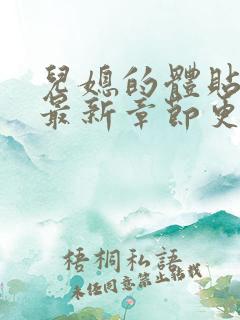 兒媳的體貼
最新章節更
梧桐私語
未经同意禁止转载